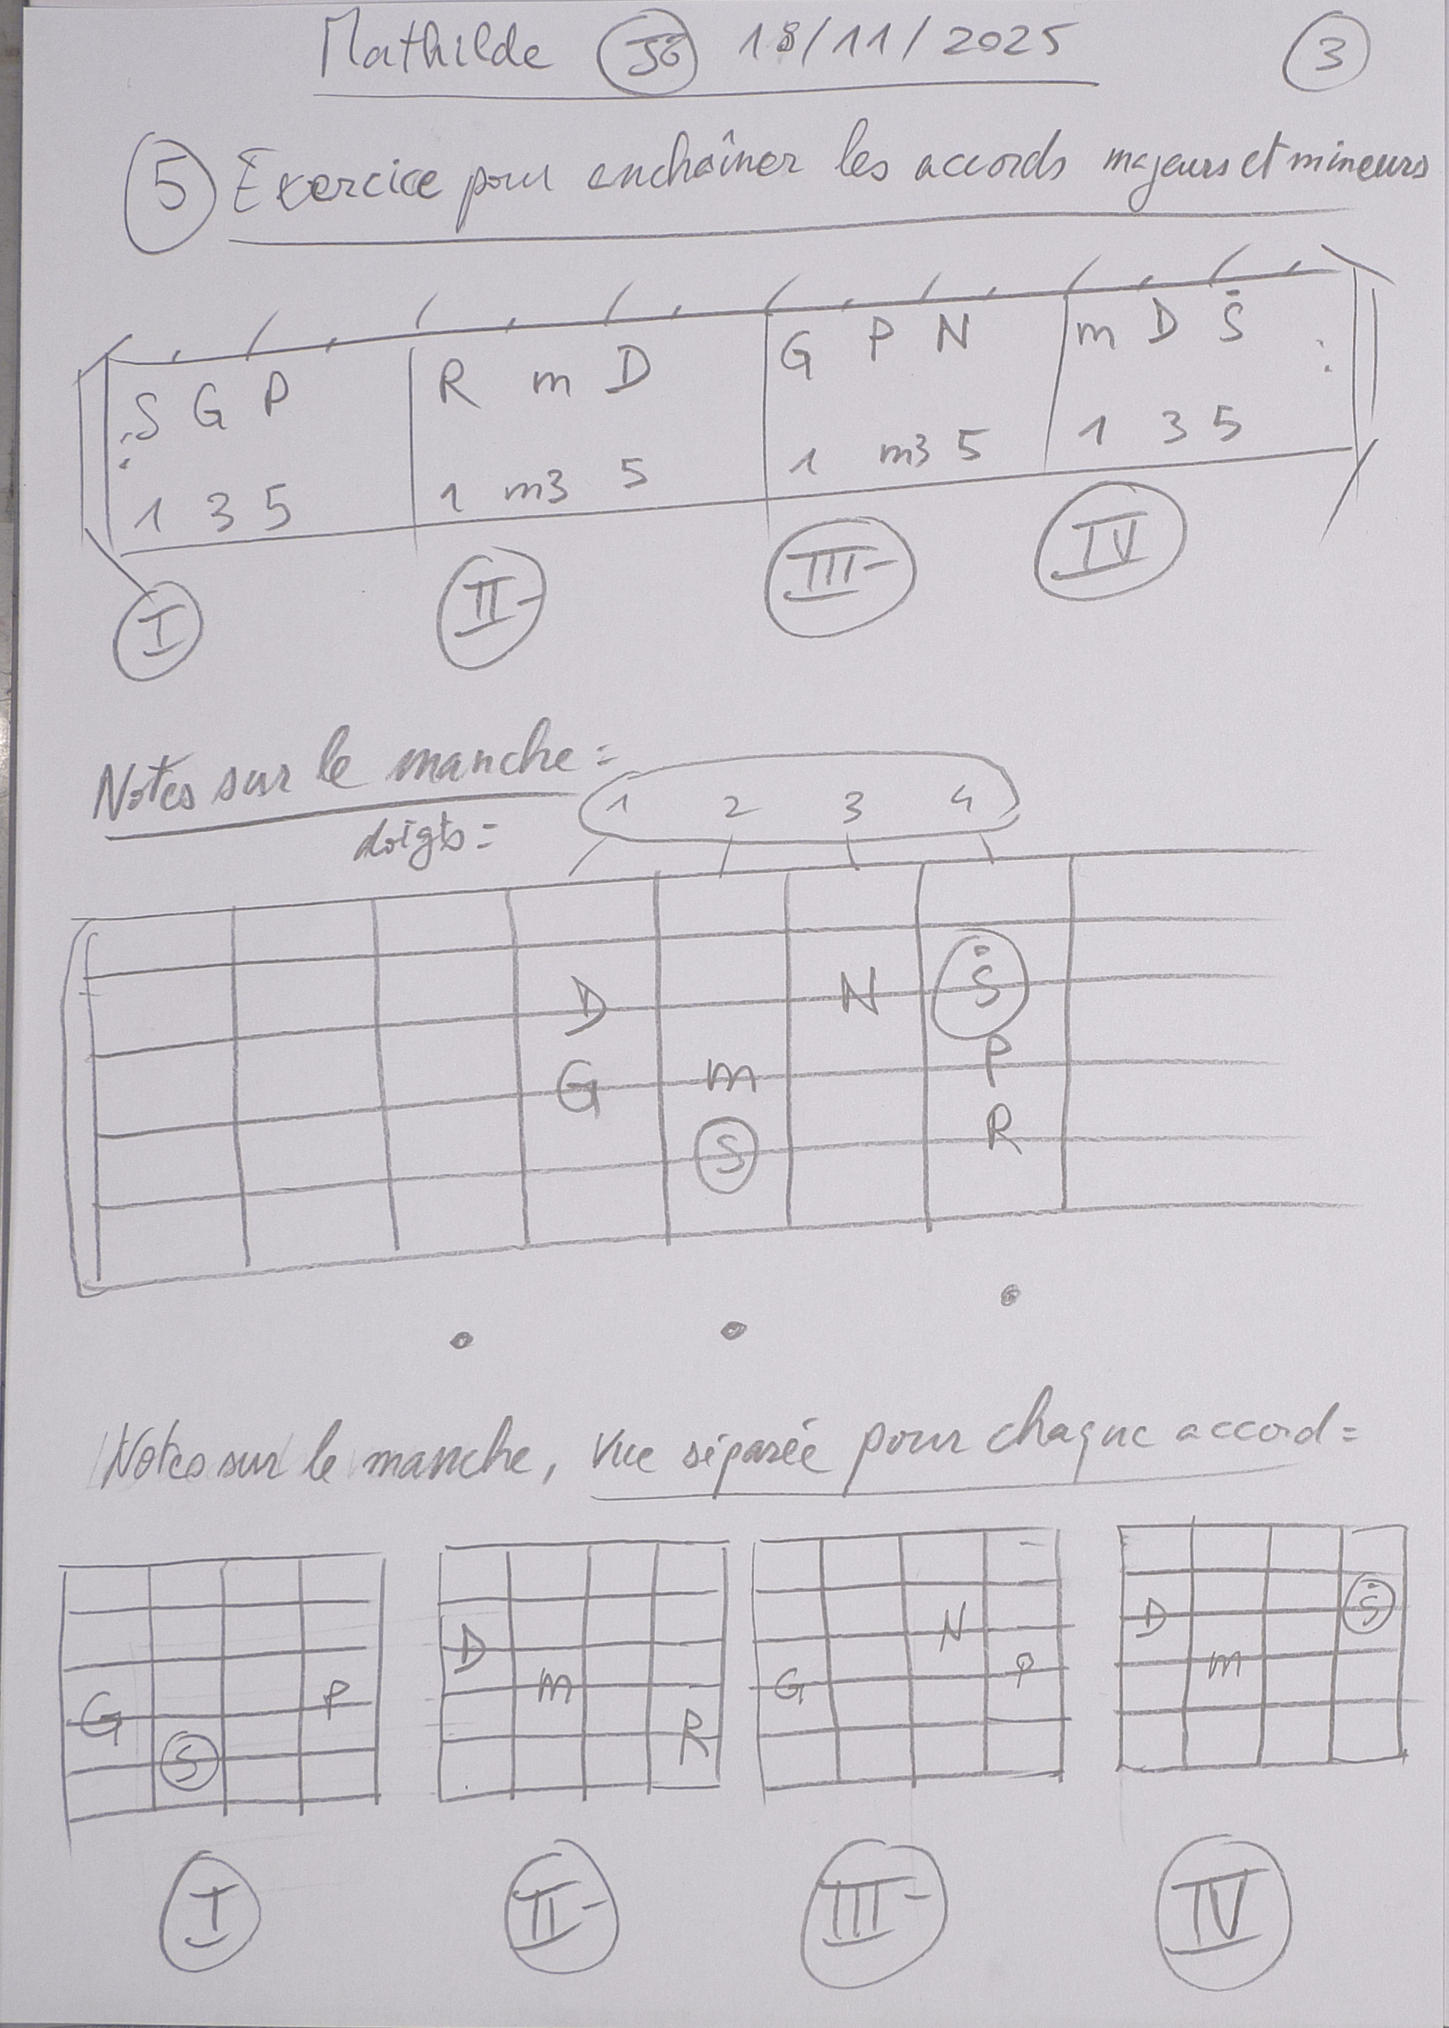 Mathilde J6 18/11/2025 3
5 Exercice pour enchaîner les accords majeurs et mineurs
S G P R m D G P N m D Ṡ
1 3 5 1 m3 5 1 m3 5 1 3 5
I II- III- IV
Notes sur le manche =
doigts = 1 2 3 4
D N Ṡ
G m P
S R
Notes sur le manche, vue séparée pour chaque accord =
D N D Ṡ
G P m G P m
S R
I II- III- IV